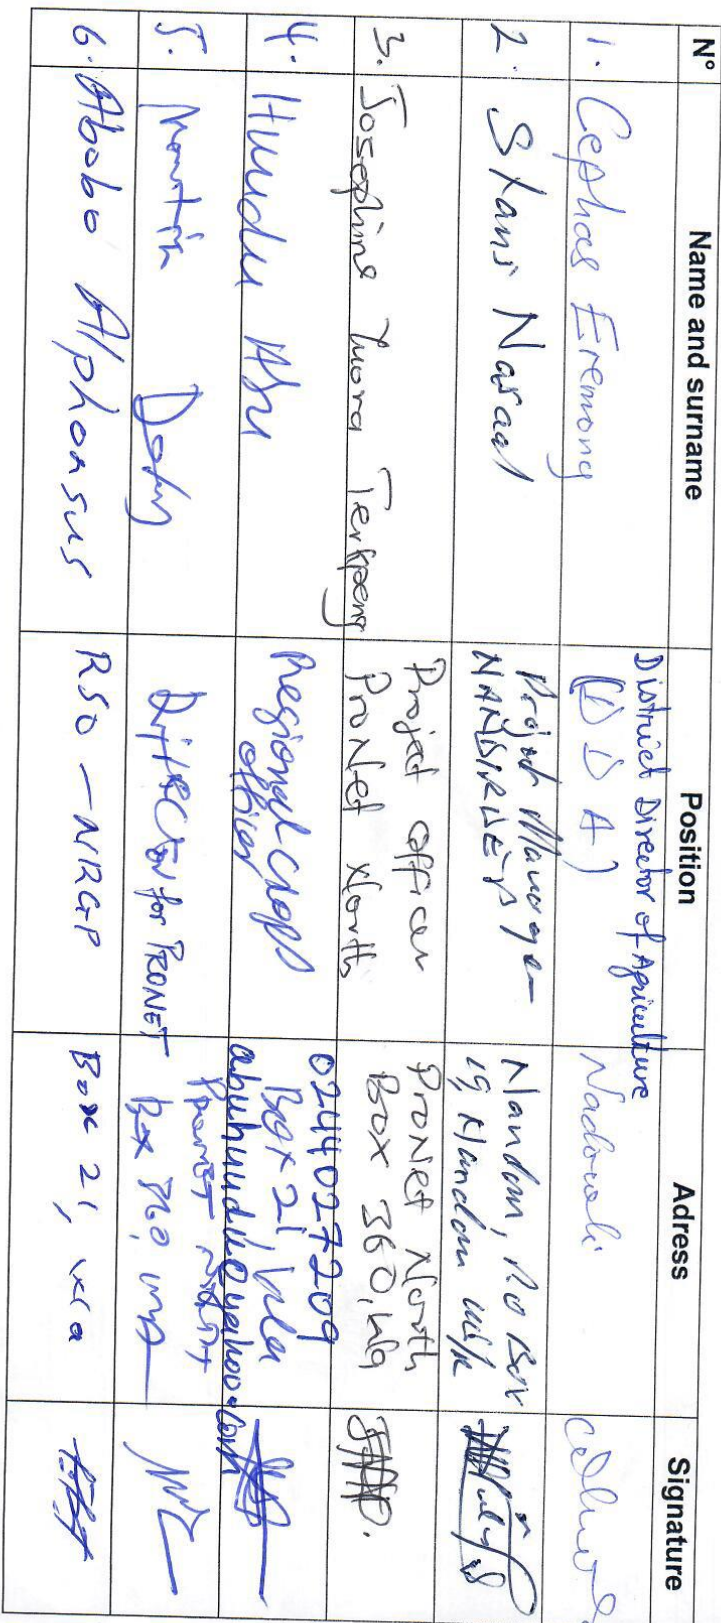 N° Name and surname Position Adress Signature
1. Cephas Eremong District Director of Agriculture Nadowli
(D D A)
2. Stanis Nasaal Project Manager Nandom, P.O Box
NANDIRDEP 19, Nandom
3. Josephine Terkpeng Project officer ProNet North
ProNet North Box 360, Wa
4. Hundu Abu Regional crops 0244027209
officer Box 21, Wa
abuhundu@yahoo.com
5. Martin Dery for PRONET PRONET North
Box 360, Wa
6. Abobo Alphonsus RSO - NRGP Box 21, Wa